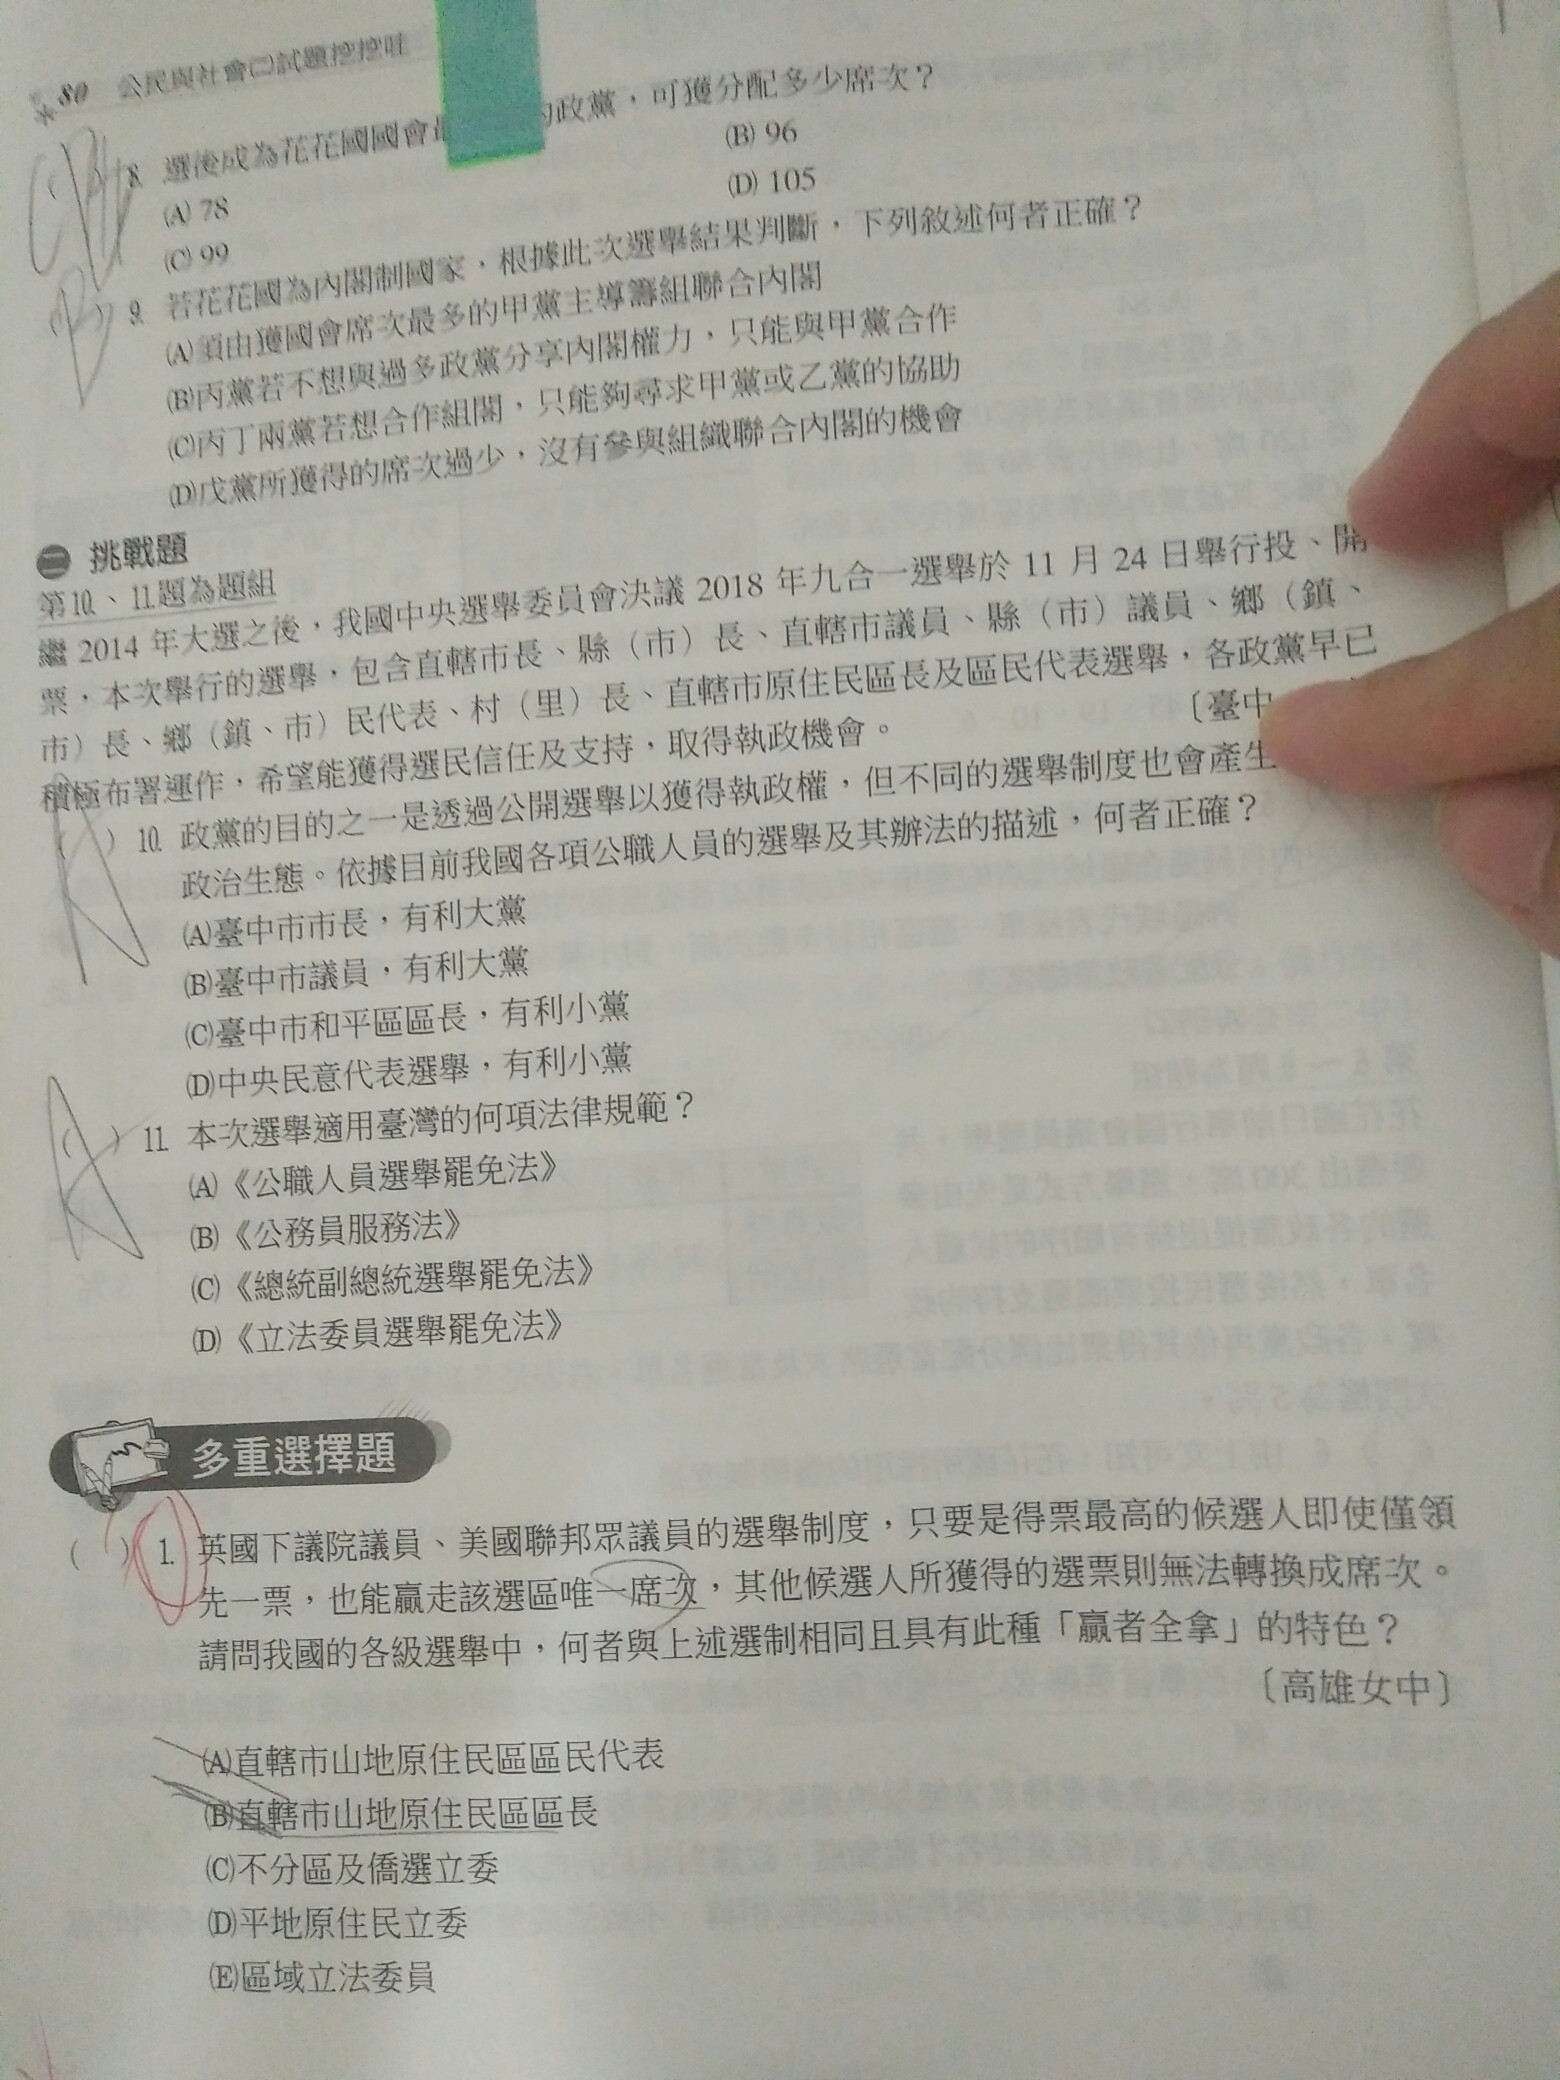 80 公民與社會(二)試題挖挖哇
( ) 8. 選後成為花花國國會 的政黨，可獲分配多少席次？
(A) 78 (B) 96
(C) 99 (D) 105
( ) 9. 若花花國為內閣制國家，根據此次選舉結果判斷，下列敘述何者正確？
(A)須由獲國會席次最多的甲黨主導籌組聯合內閣
(B)丙黨若不想與過多政黨分享內閣權力，只能與甲黨合作
(C)丙丁兩黨若想合作組閣，只能夠尋求甲黨或乙黨的協助
(D)戊黨所獲得的席次過少，沒有參與組織聯合內閣的機會
二 挑戰題
第10、11題為題組
繼 2014 年大選之後，我國中央選舉委員會決議 2018 年九合一選舉於 11 月 24 日舉行投、開
票，本次舉行的選舉，包含直轄市長、縣（市）長、直轄市議員、縣（市）議員、鄉（鎮、
市）長、鄉（鎮、市）民代表、村（里）長、直轄市原住民區長及區民代表選舉，各政黨早已
積極布署運作，希望能獲得選民信任及支持，取得執政機會。 〔臺中
( ) 10. 政黨的目的之一是透過公開選舉以獲得執政權，但不同的選舉制度也會產生
政治生態。依據目前我國各項公職人員的選舉及其辦法的描述，何者正確？
(A)臺中市市長，有利大黨
(B)臺中市議員，有利大黨
(C)臺中市和平區區長，有利小黨
(D)中央民意代表選舉，有利小黨
( ) 11. 本次選舉適用臺灣的何項法律規範？
(A)《公職人員選舉罷免法》
(B)《公務員服務法》
(C)《總統副總統選舉罷免法》
(D)《立法委員選舉罷免法》
多重選擇題
( ) 1. 英國下議院議員、美國聯邦眾議員的選舉制度，只要是得票最高的候選人即使僅領
先一票，也能贏走該選區唯一席次，其他候選人所獲得的選票則無法轉換成席次。
請問我國的各級選舉中，何者與上述選制相同且具有此種「贏者全拿」的特色？
〔高雄女中〕
(A)直轄市山地原住民區區民代表
(B)直轄市山地原住民區區長
(C)不分區及僑選立委
(D)平地原住民立委
(E)區域立法委員